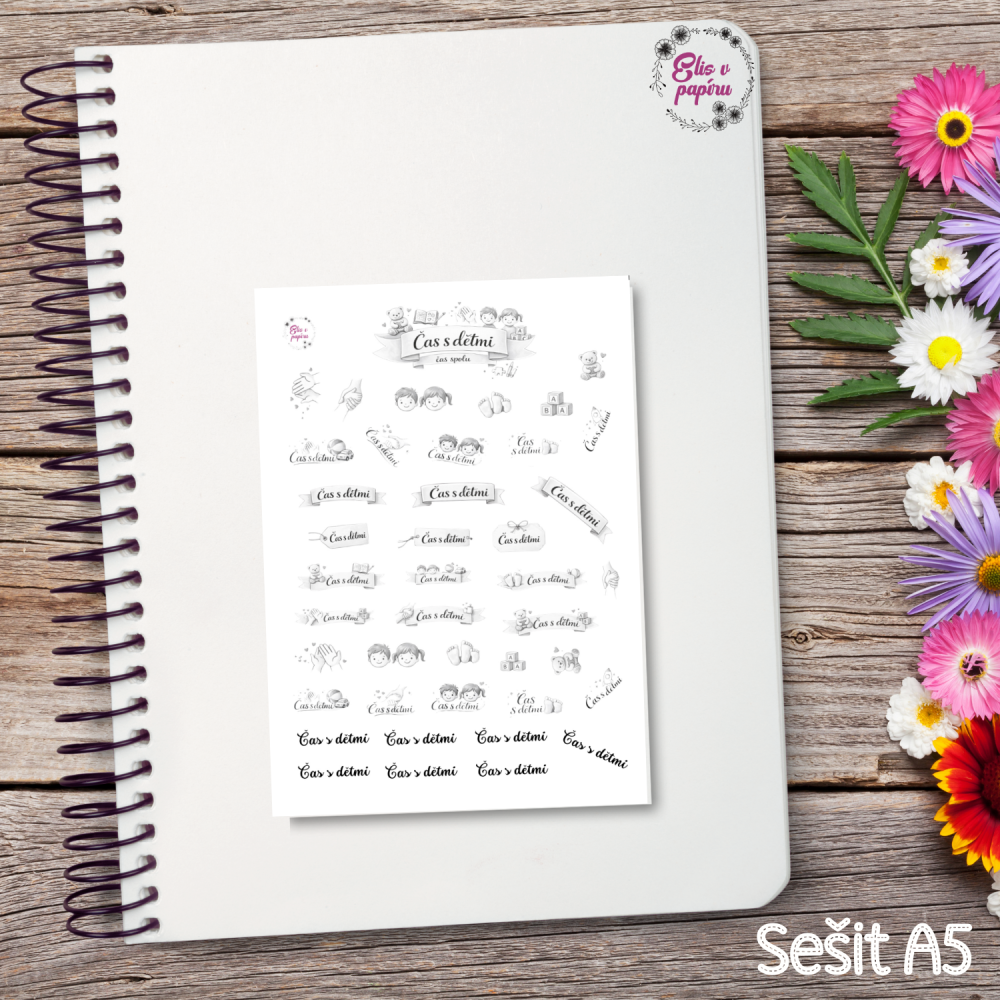 Elis v
papíru
Elis v
papíru
Čas s dětmi
čas spolu
A
B A
Čas s dětmi
Čas s dětmi
Čas s dětmi
Čas s dětmi
Čas
s dětmi
Čas s dětmi
Čas s dětmi
Čas s dětmi
Čas s dětmi
Čas s dětmi
Čas s dětmi
Čas s dětmi
Čas s dětmi
Čas s dětmi
Čas s dětmi
Čas s dětmi
Čas s dětmi
Čas s dětmi
A
B A
Čas s dětmi
Čas s dětmi
Čas s dětmi
Čas
s dětmi
Čas s dětmi
Čas s dětmi Čas s dětmi Čas s dětmi Čas s dětmi
Čas s dětmi Čas s dětmi Čas s dětmi
Sešit A5